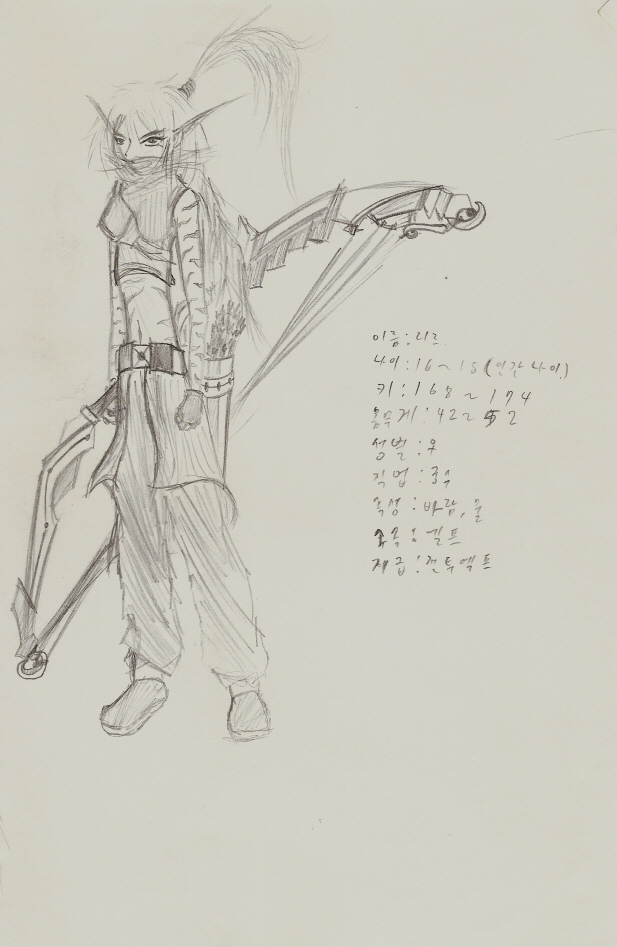 이름:리르
나이:16~18(인간 나이)
키:168~174
몸무게:42~52
성별:우
직업:궁수
속성:바람,물
소속:길드
계급:전투엘프